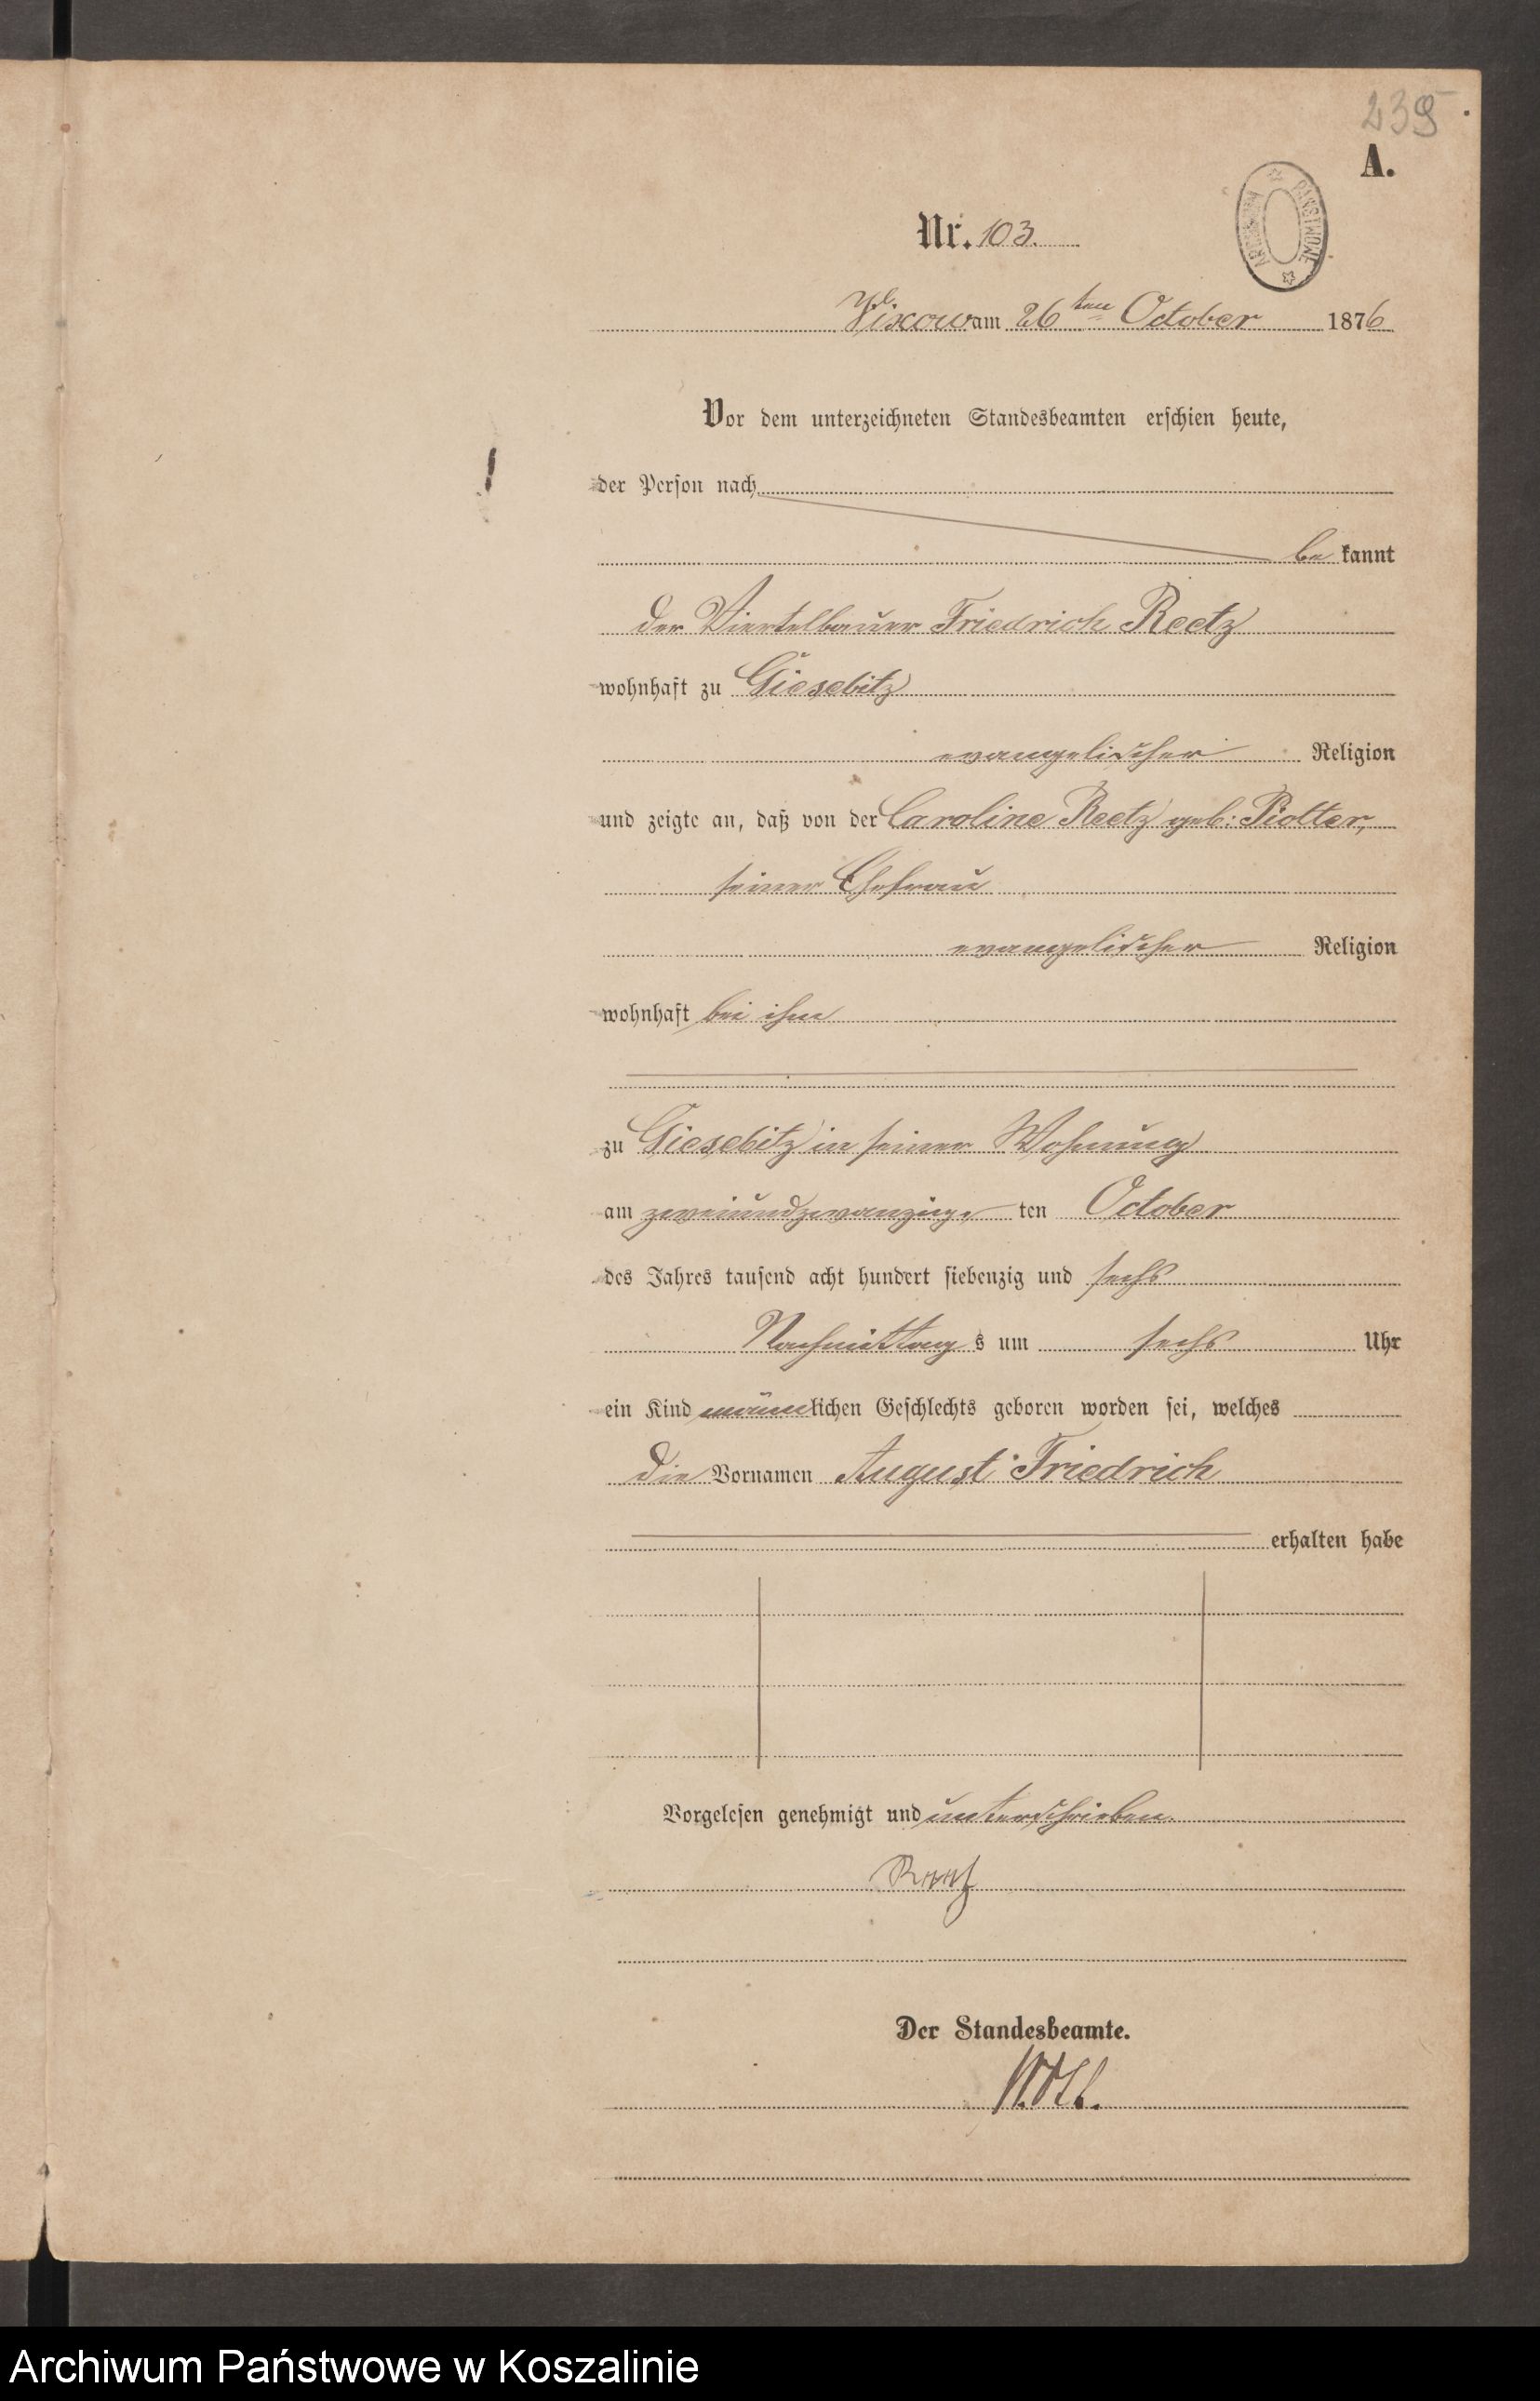 239
A.
ARCHIWUM PAŃSTWOWE
Nr. 103.
Vixow am 26ten October 1876
Vor dem unterzeichneten Standesbeamten erschien heute,
der Person nach
be kannt
der Viertelbauer Friedrich Reetz
wohnhaft zu Giesebitz
evangelischer Religion
und zeigte an, daß von der Caroline Reetz geb: Piolter,
seiner Ehefrau
evangelischer Religion
wohnhaft bei ihm
zu Giesebitz in seiner Wohnung
am zweiundzwanzigs ten October
des Jahres tausend acht hundert siebenzig und sechs
Nachmittag s um sechs Uhr
ein Kind männlichen Geschlechts geboren worden sei, welches
die Vornamen August Friedrich
erhalten habe
Vorgelesen genehmigt und unterschrieben.
Reetz
Der Standesbeamte.
Archiwum Państwowe w Koszalinie